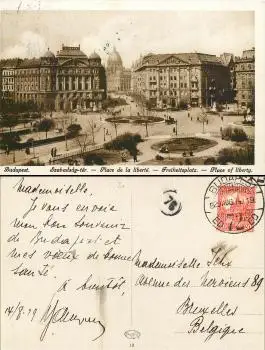 Budapest. Szabadság-tér. — Place de la liberté. — Freiheitsplatz. — Place of liberty.
Mademoiselle,
Je vous envoie
mon bon souvenir
de Budapest et
mes vœux de bonne
santé.
A bientôt,
14/8/29
Mademoiselle
Avenue des Nerviens 89
Bruxelles
Belgique
BUDAPEST